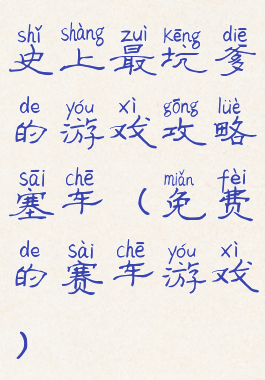 shǐ shàng zuì kēng diē
史上最坑爹
de yóu xì gōng lüè
的游戏攻略
sāi chē miǎn fèi
塞车（免费
de sài chē yóu xì
的赛车游戏
）